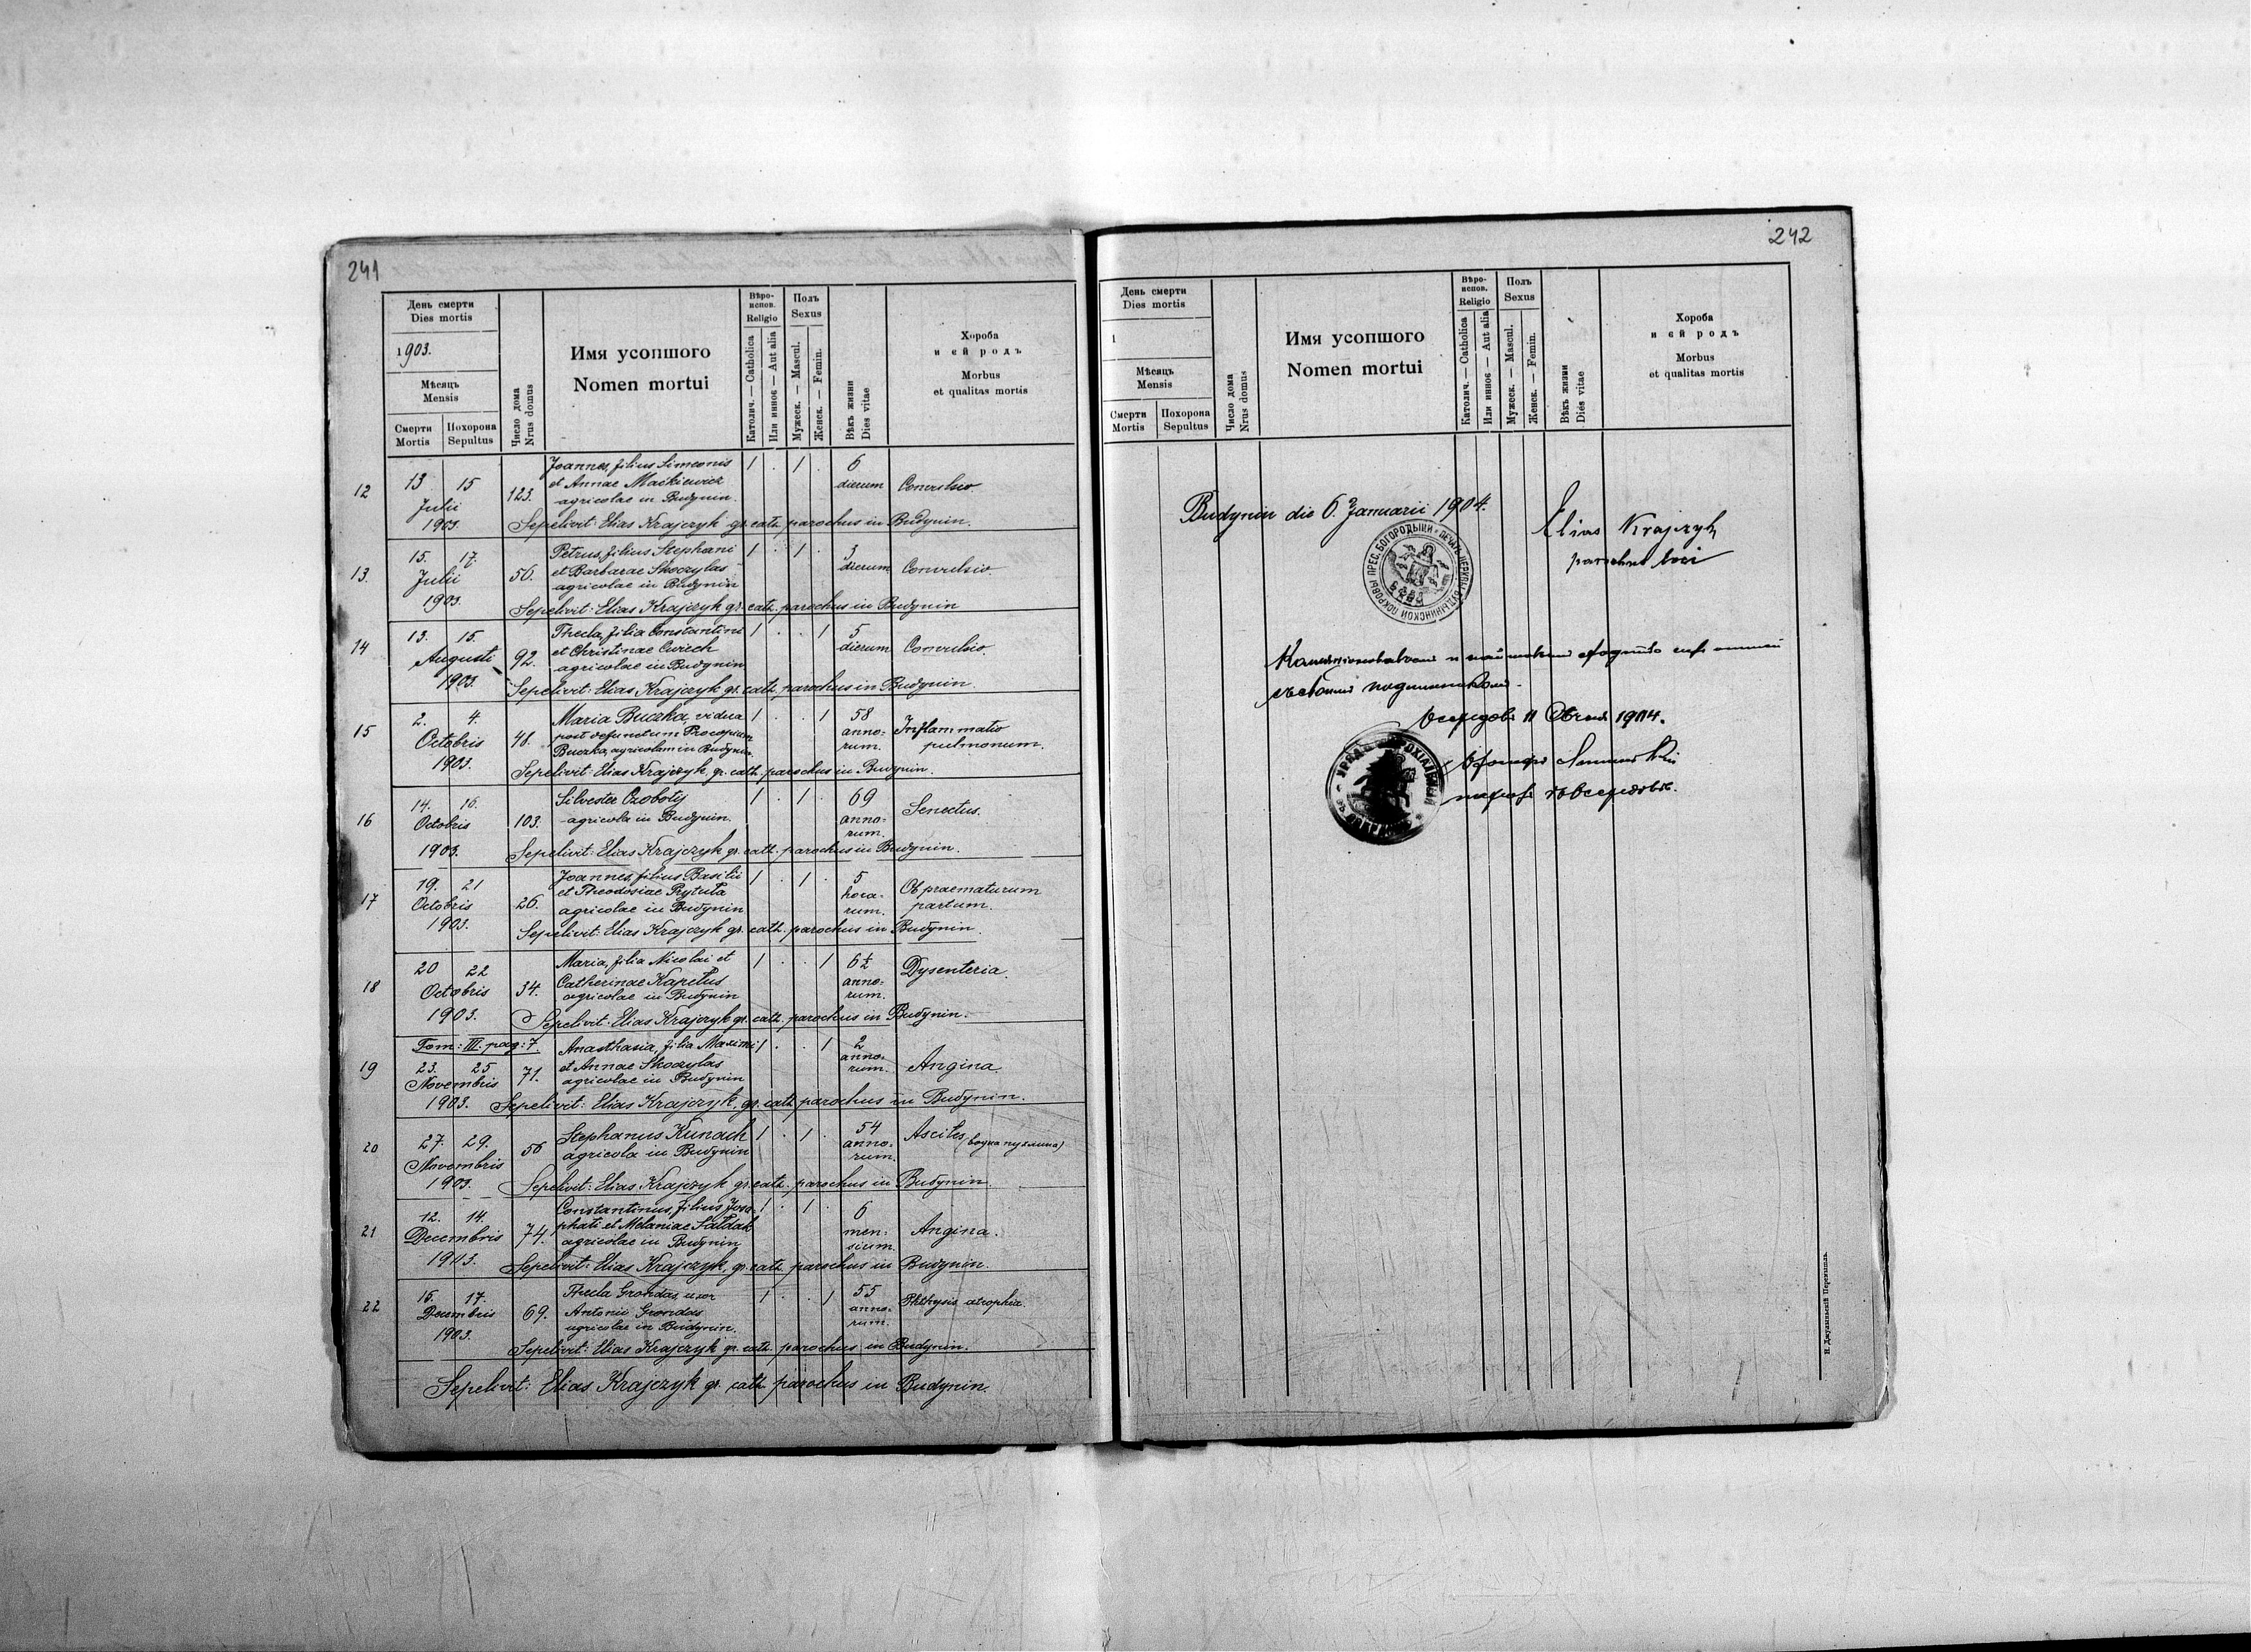 241
День смерти
Dies mortis
1903.
Мѣсяць
Mensis
Смерти
Mortis
Похорона
Sepultus
Число дома
Nrus domus
Имя усопшого
Nomen mortui
Вѣро-
испов.
Religio
Католич. — Catholica
Или инноє — Aut alia
Полъ
Sexus
Мужеск. — Mascul.
Женск. — Femin.
Вѣкъ жизни
Dies vitae
Хороба
и єй родъ
Morbus
et qualitas mortis
12
13 15
Julii
1903.
123.
Joannes, filius Simeonis
et Annae Mackiewicz
agricolae in Budynin.
1 . 1 .
6
dierum
Convulsio
Sepelivit: Elias Krajczyk gr. cath. parochus in Budynin.
13.
15. 17.
Julii
1903.
56.
Petrus, filius Stephani
et Barbarae Skoczylas
agricolae in Budynin
1 . 1 .
3
dierum
Convulsio.
Sepelivit: Elias Krajczyk gr. cath. parochus in Budynin
14
13. 15.
Augusti
1903.
92.
Thecla, filia Constantini
et Christinae Cwiech
agricolae in Budynin
1 . . 1
5
dierum
Convulsio.
Sepelivit: Elias Krajczyk gr. cath. parochus in Budynin.
15
2. 4.
Octobris
1903.
48.
Maria Buczka, vidua
post defunctum Procopium
Buczka, agricolam in Budynin
1 . . 1
58
anno-
rum.
Inflammatio
pulmonum.
Sepelivit: Elias Krajczyk, gr. cath. parochus in Budynin.
16
14. 16.
Octobris
1903.
103.
Silvester Czoboty
agricola in Budynin.
1 . 1 .
69
anno-
rum.
Senectus.
Sepelivit: Elias Krajczyk gr. cath. parochus in Budynin.
17
19. 21
Octobris
1903.
26.
Joannes, filius Basilii
et Theodosiae Prytuła
agricolae in Budynin
1 . 1 .
5
hora-
rum.
Ob praematurum
partum.
Sepelivit: Elias Krajczyk gr. cath. parochus in Budynin.
18
20 22
Octobris
1903.
34.
Maria, filia Nicolai et
Catherinae Kapelus
agricolae in Budynin
1 . . 1
6½
anno-
rum.
Dysenteria.
Sepelivit: Elias Krajczyk gr. cath. parochus in Budynin.
Tom: III. pag: 7.
19
23. 25
Novembris
1903.
71.
Anasthasia, filia Maximi
et Annae Skoczylas
agricolae in Budynin
1 . . 1
2
anno-
rum.
Angina.
Sepelivit: Elias Krajczyk, gr. cath. parochus in Budynin.
20
27. 29.
Novembris
1903.
56
Stephanus Kunach
agricola in Budynin
1 . 1 .
54
anno-
rum.
Ascites (водна пухлина)
Sepelivit: Elias Krajczyk gr. cath. parochus in Budynin.
21
12. 14.
Decembris
1903.
74.
Constantinus, filius Josa-
phati et Melaniae Sałdak
agricolae in Budynin
1 . 1 .
6
men-
sium.
Angina.
Sepelivit: Elias Krajczyk, gr. cath. parochus in Budynin.
22
15. 17.
Decembris
1903.
69.
Thecla Grondas, uxor
Antonii Grondas
agricolae in Budynin.
1 . . 1
55
anno-
rum.
Phthysis atrophia.
Sepelivit: Elias Krajczyk gr. cath. parochus in Budynin.
Sepelivit: Elias Krajczyk gr. cath. parochus in Budynin.
242
День смерти
Dies mortis
1
Мѣсяць
Mensis
Смерти
Mortis
Похорона
Sepultus
Число дома
Nrus domus
Имя усопшого
Nomen mortui
Вѣро-
испов.
Religio
Католич. — Catholica
Или инноє — Aut alia
Полъ
Sexus
Мужеск. — Mascul.
Женск. — Femin.
Вѣкъ жизни
Dies vitae
Хороба
и єй родъ
Morbus
et qualitas mortis
Budynin die 6. Januarii 1904.
Elias Krajczyk
parochus loci
ПЕЧАТЬ ЦЕРКВИ БУДЫНИНСКОЙ ПОКРОВЫ ПРЕС. БОГОРОДЫЦИ
1904.
УРЯДЪ ПАРОХІАЛЬНЫЙ
Н. Джулиньскій Перемышль.